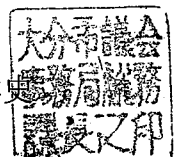 大分市議会
事務局務
課長之印